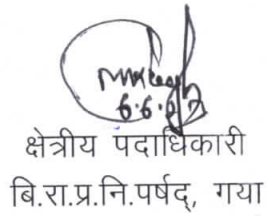 6.6.07
क्षेत्रीय पदाधिकारी
बि.रा.प्र.नि.पर्षद्, गया